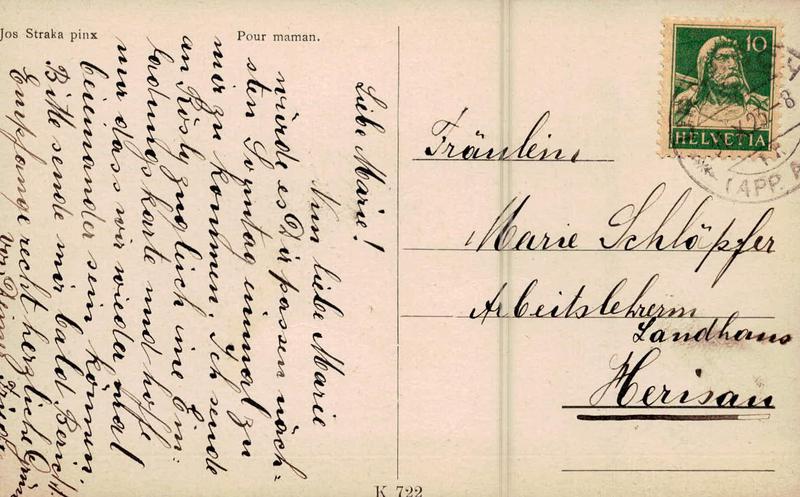 Jos Straka pinx
Pour maman.
Liebe Marie!
Nun liebe Marie
würde es Dir passen näch-
sten Sonntag einmal zu
mir zu kommen. Ich sende
an Rösly zugleich eine Ein-
ladungskarte und hoffe
nur dass wir wieder mal
beieinander sein können.
Bitte sende mir bald Bericht.
Empfange recht herzliche Grüsse
von Deiner Frieda
Fräulein
Marie Schläpfer
Arbeitslehrerin
Landhaus
Herisau
K 722
10
HELVETIA
(APP. A